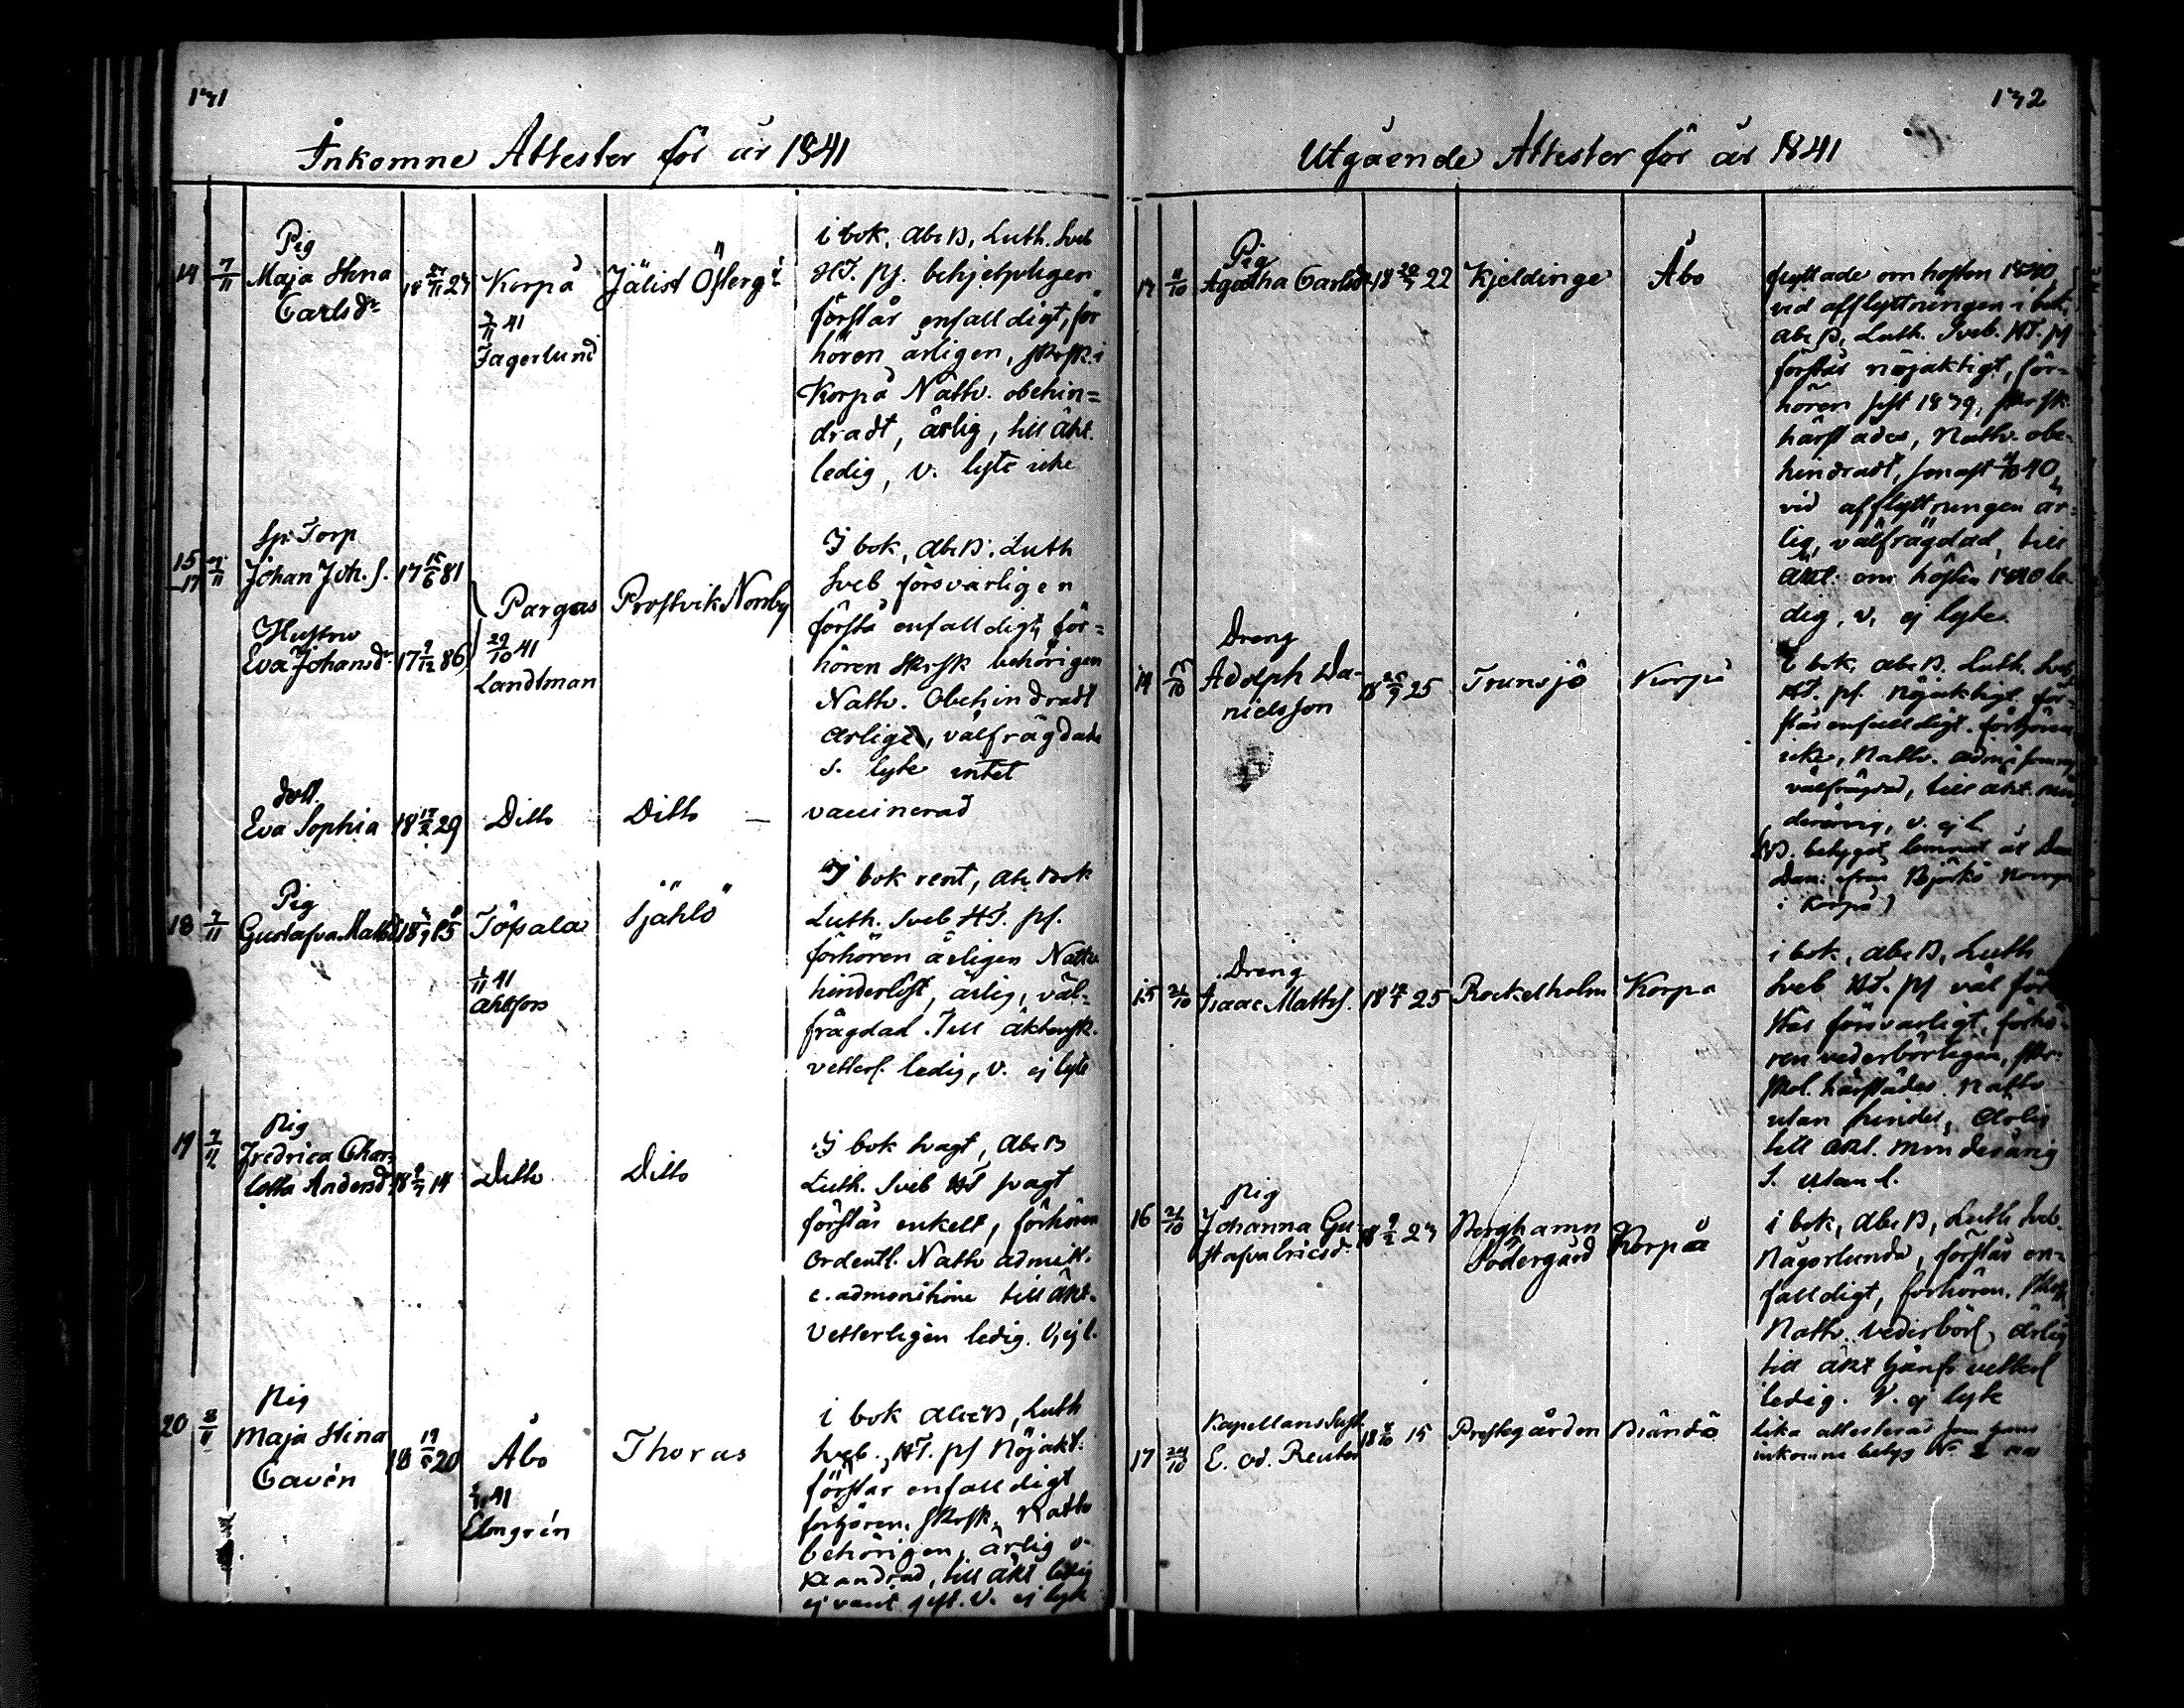 171
Inkomne Attester för år 1841
14 7/11 Pig
Maja Stina
Carlsdr
18 27/11 27
Korpo
7/11 41
Fagerlund
Jälist Österg:
i bok, abc B, Luth. Sveb
HT. ps. behjelpligen
förstår enfalldigt, för
hören årligen, skrsk. i
Korpo Nattv. obehin=
dradt, ärlig, till äkt.
ledig, v. lyte icke
15
17 7/11
Torp
Johan Joh. s. 17 15/6 81
Hustru
Eva Johansdr 17 9/12 86
Pargas
29/10 41
Landtman
Prostvik Norrby
I bok, abc B. Luth
Sveb försvarligen
förstå enfalldigt, för=
hören skrsk behörigen
Nattv. Obehindradt
ärlige, välfrägdade
s. lyte intet
dott.
Eva Sophia 18 17/2 29 Ditto Ditto — vaccinerad
18 7/11 Pig
Gustafva Mattsd
Töfsala
1/11 41
Ahlfors
Själö
I bok rent, abc Bok
Luth. Sveb HT. ps.
förhören årligen Nattv
hinderlöst, ärlig, väl-
frägdad. Till äktensk.
vetterl. ledig, v. ej lyte
19 7/11 Pig
Fredrica Char
lotta Andersd 18 14 Ditto Ditto
I bok svagt, abc B
Luth. Sveb HT svagt
förstår enkelt, förhören
ordentl. Nattv admitt.
c. admonitione till äkt.
Vetterligen ledig. V, ej l.
20 8/11 Pig
Maja Stina
Cavén
18 19 20
Åbo
41
Elmgrén
Thoras
i bok abc B, Luth
Sveb. HT. ps Nöjakt.
förstår enfalldigt
förhören, skrsk, Nattv
behörigen, ärlig o.
klandrad, till äkt ledig
ej v. ej lyte
172
Utgående Attester för år 1841
11/10 Pig
Agatha Carlsd 18 22 Kjeldinge Åbo
flyttade om hösten 1840
vid afflyttningen i bok,
abc B, Luth. Sveb. HT. ps
förstås nöjaktigt, för=
hören sist 1839, skrsk
härstädes, Nattv. obe-
hindradt, senast 40,
vid afflyttningen är=
lig, välfrägdad, till
äkt. om hösten 1840 le-
dig, v, ej lyte.
14 Dreng
Adolph Da-
nielsson
18 9 25 Trunsjö Korpo
i bok, abc B. Luth. Sveb
HT. ps. nöjaktigt för-
stås enfalldigt. förhören
icke, Nattv.
välfrägdad, till äkt. min
derårig, v. ej l.
NB. betyget lemnat åt Dan
Dan: ifrån Björkö Norrg
i Korpo)
15 21/10 Dreng
Isaac Matts. 18 25 Rockelholm Korpo
i bok, abc B, Luth
Sveb HT. ps väl för
stås försvarligt, förhö-
ren vederbörligen, skr=
skol. härstädes. Nattv
utan hinder, ärlig
till äkt. minderårig
s. utan l.
16 21/10 Pig
Johanna Gu-
stafva Ericsd. 18 9/2 27
Berghamn
Södergård
Korpo
i bok, abc B, Luth Sveb.
Någorlunda, förstås en=
falldigt, förhören, skrsk
Nattv. vederbörl, ärlig
till äkt vetterl
ledig. V. ej lyte
17 24/10 Kapellans Sust.
E. Od. Reuter 18 15 Prestegården Brändö
lika attesterad som hans
inkomne betyg N: 2